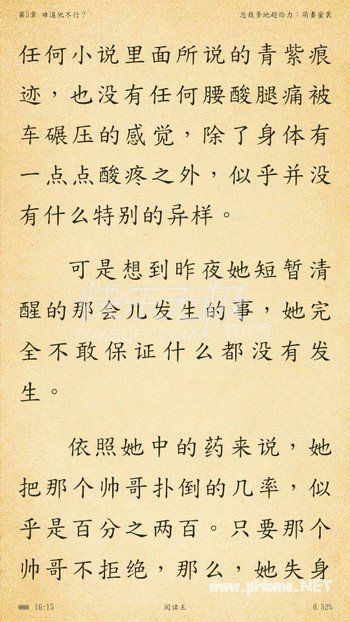 第5章 难道他不行？ 总裁爹地超给力：萌妻蜜袭
任何小说里面所说的青紫痕
迹，也没有任何腰酸腿痛被
车碾压的感觉，除了身体有
一点点酸疼之外，似乎并没
有什么特别的异样。
可是想到昨夜她短暂清
醒的那会儿发生的事，她完
全不敢保证什么都没有发
生。
依照她中的药来说，她
把那个帅哥扑倒的几率，似
乎是百分之两百。只要那个
帅哥不拒绝，那么，她失身
www.pHome.NET
16:15 阅读王 0.52%